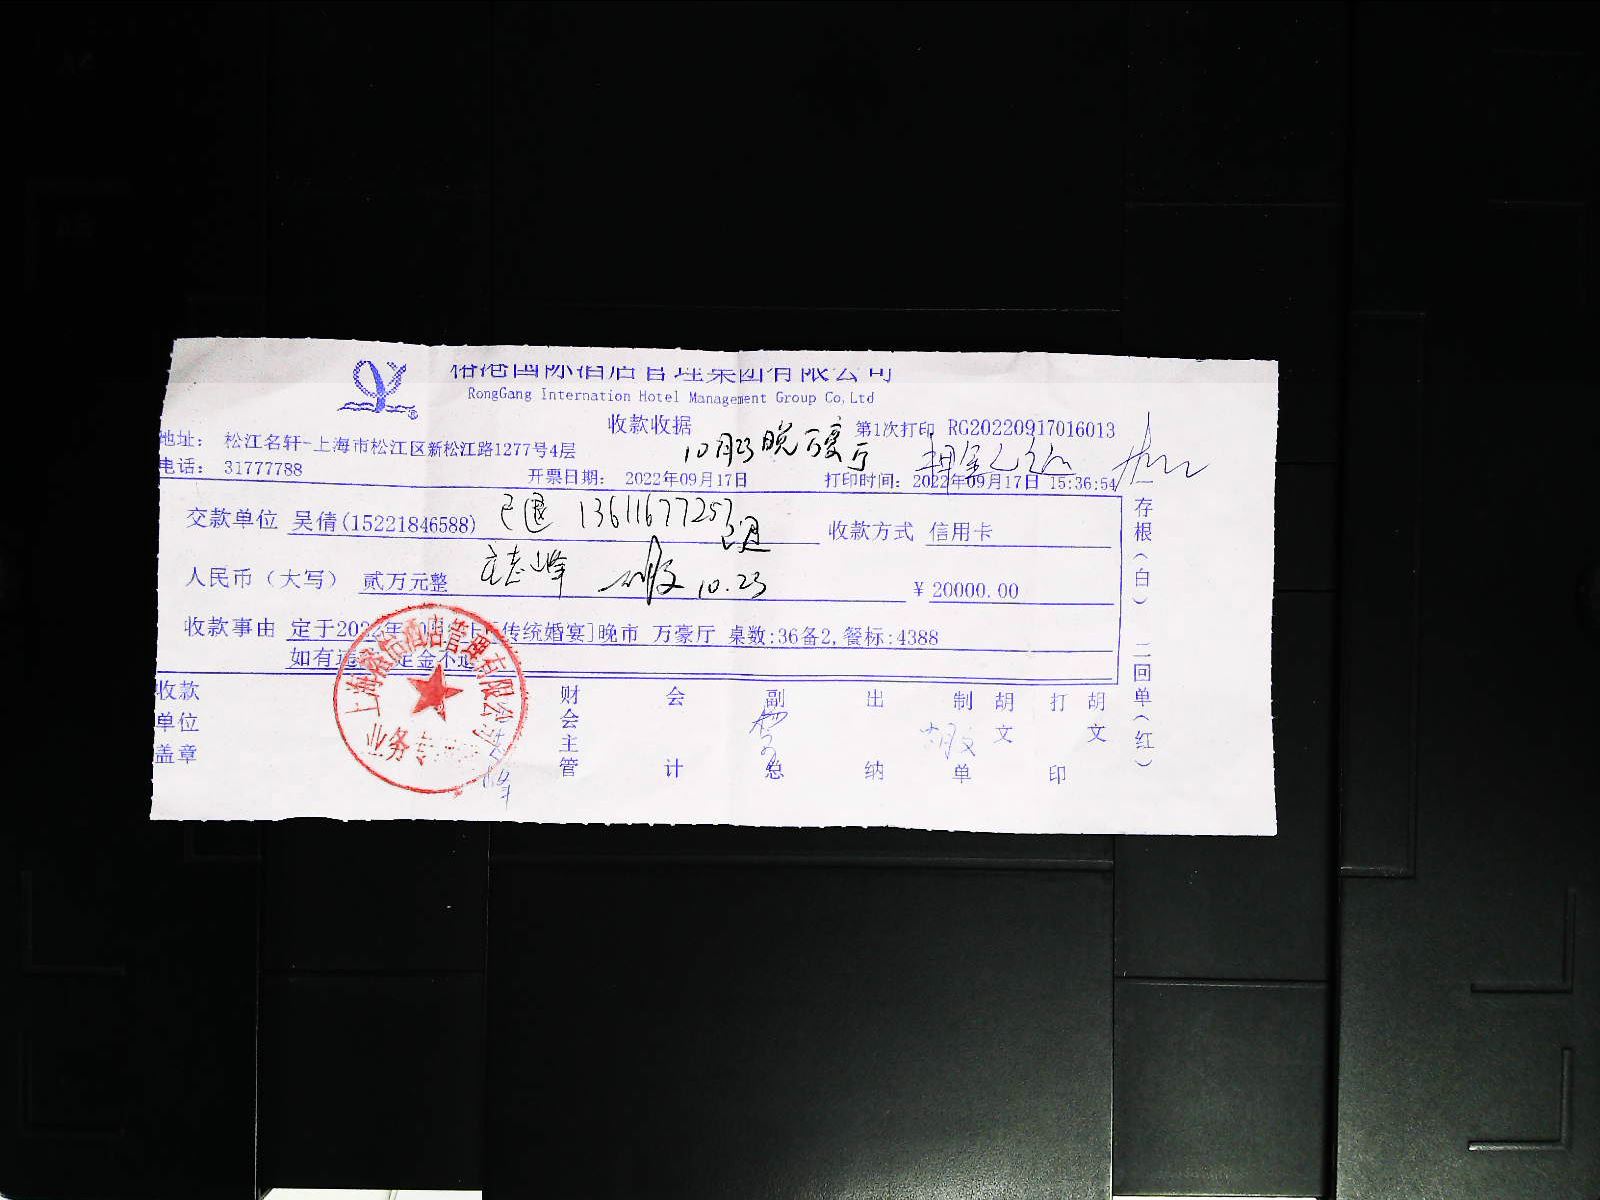 国际酒店管理集团有限公司
RongGang Internation Hotel Management Group Co,Ltd
收款收据
第1次打印 RG20220917016013
地址: 松江名轩-上海市松江区新松江路1277号4层
10月23晚万豪厅
电话: 31777788
开票日期: 2022年09月17日
打印时间: 2022年09月17日 15:36:54
交款单位 吴倩(15221846588)
已退 13611677257
收款方式 信用卡
人民币(大写) 贰万元整
10.23
¥ 20000.00
收款事由 定于2022年 传统婚宴]晚市 万豪厅 桌数:36备2,餐标:4388
如有 定金不退
收款单位盖章
财会主管
会计
副总
出纳
制单
胡文
打印
胡文
胡文
一存根(白) 二回单(红)
上海 酒店管理有限公司
业务专